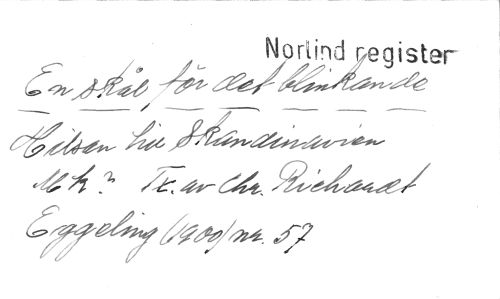 Norlind register
En skål för det blinkande
Hilsen til Skandinavien
Mk? Tx. av Chr. Richardt
Eggeling (1900) nr. 57